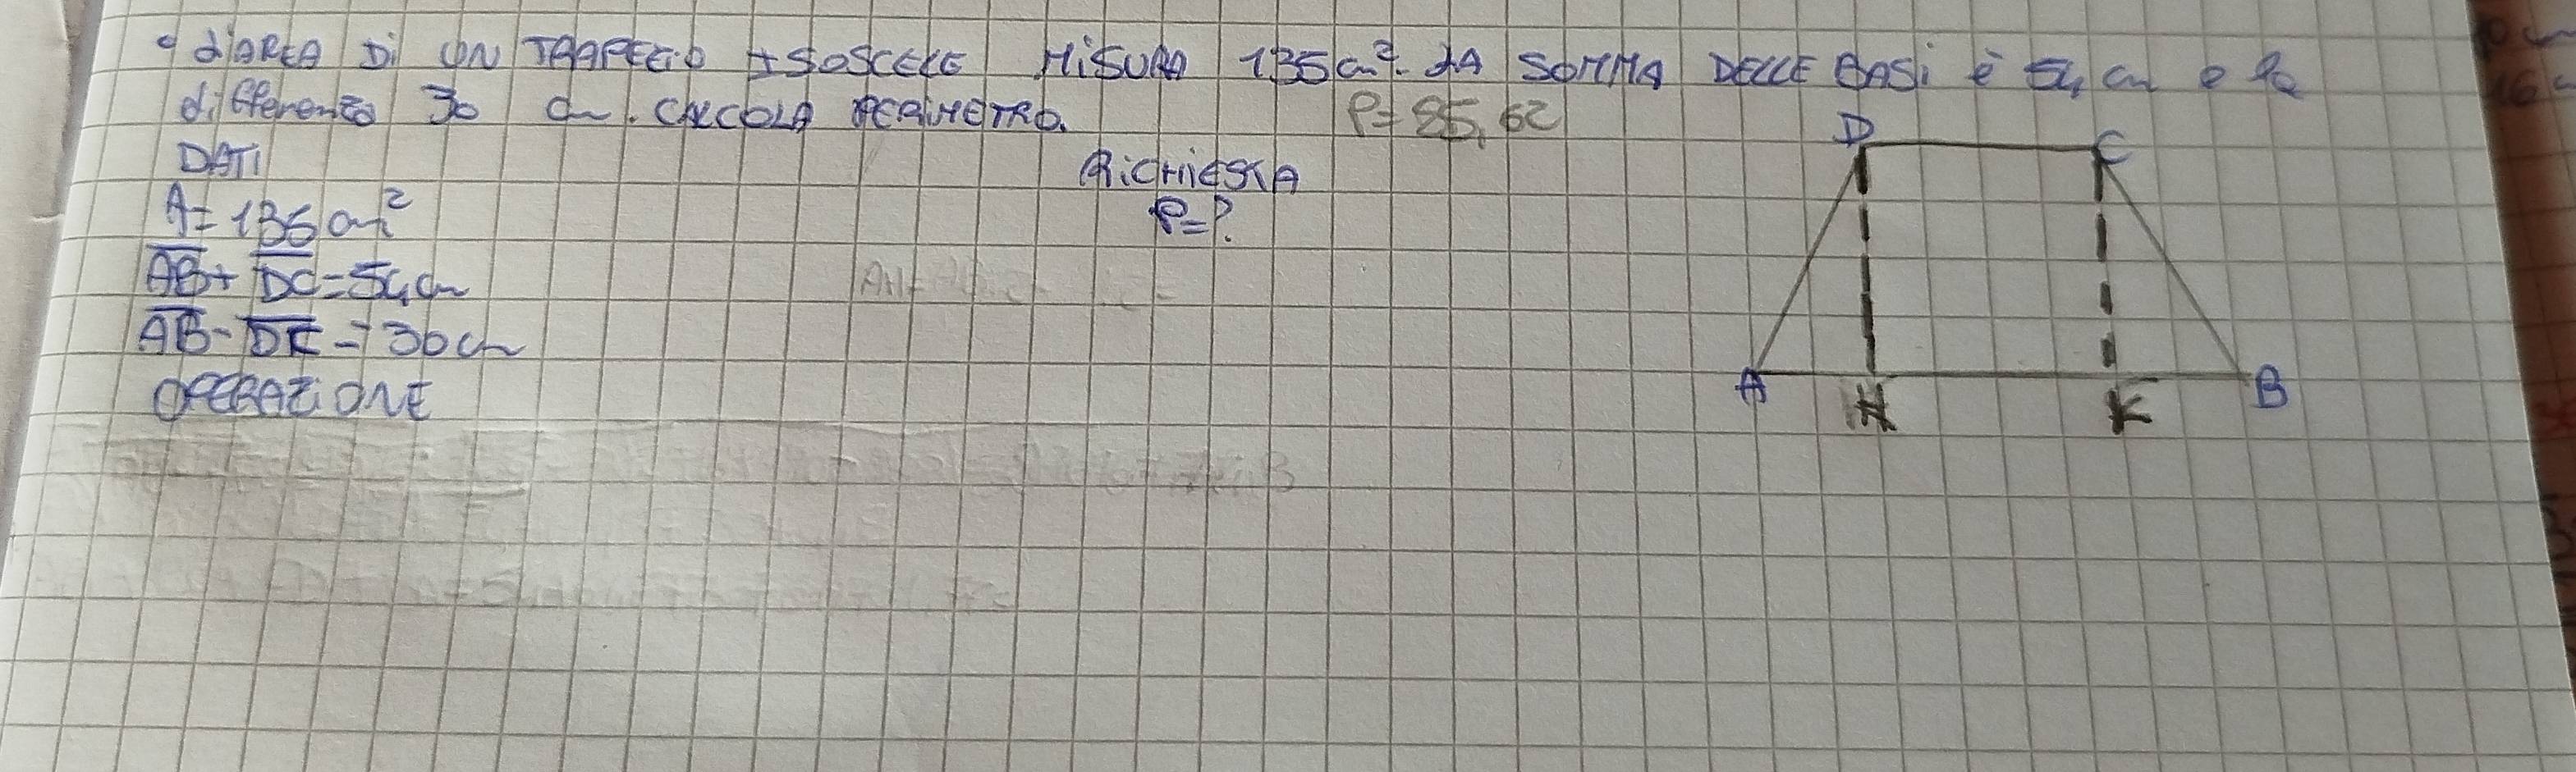 L'AREA DI UN TRAPEZIO ISOSCELE MISURA 135 cm². LA SOMMA DELLE BASI è 54 cm e la
differenza 30 cm. CALCOLA PERIMETRO. P= 85,62
DATI
RICHIESTA
A= 135 cm²
P=?
AB+ DC=54cm
AB- DC = 30cm
OPERAZIONE
D C
A H K B